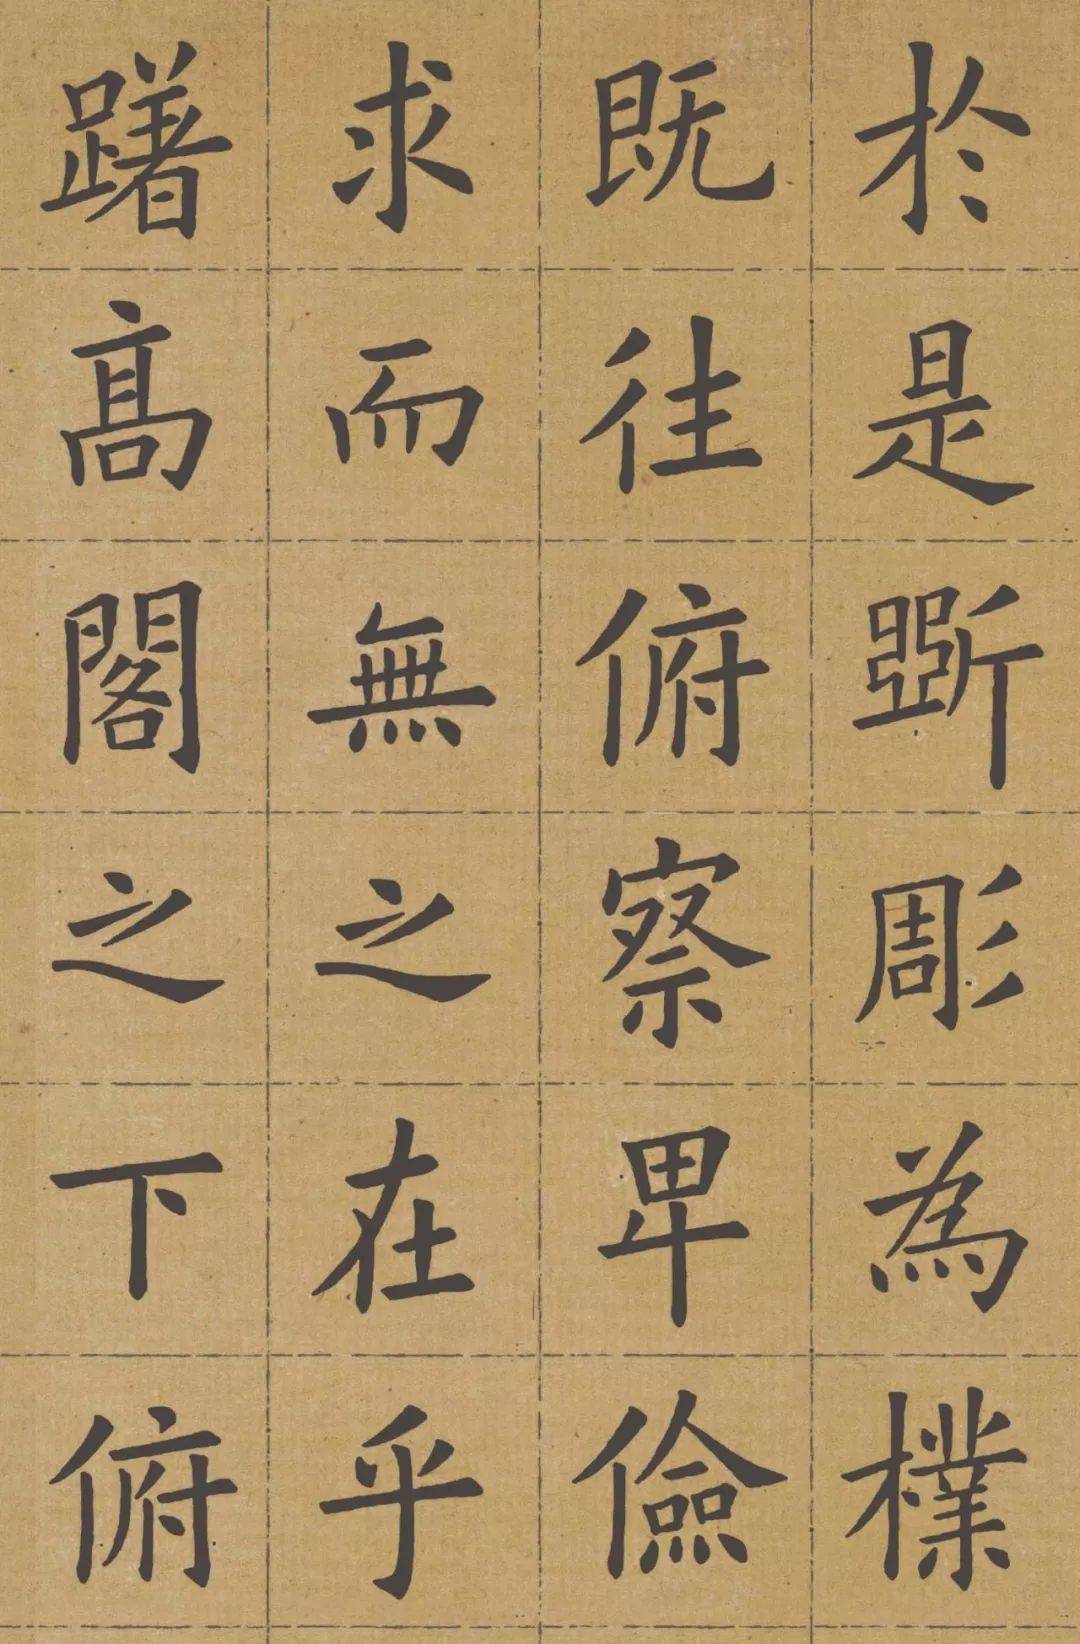 於是斲彫為樸
既往俯察卑儉
求而無之在乎
躇高閣之下俯